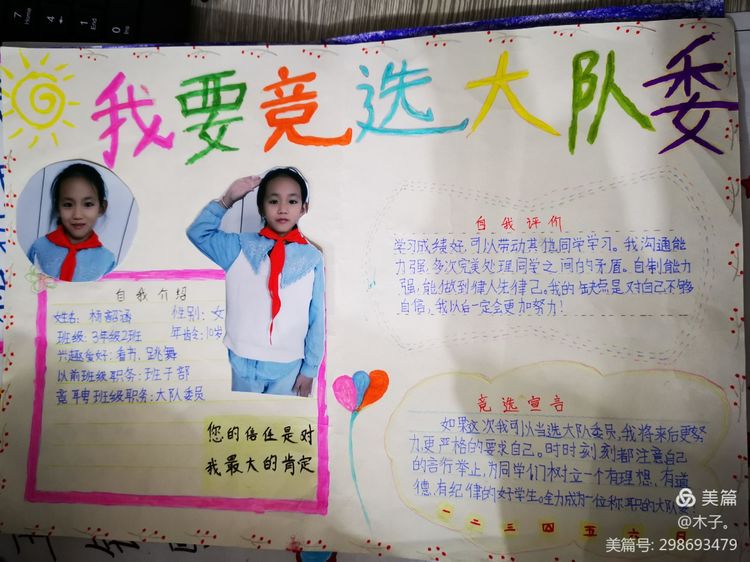 我要竞选大队委
自我介绍
姓名: 杨韶涵 性别: 女
班级: 3年级2班 年龄: 10岁
兴趣爱好: 看书、跳舞
以前班级职务: 班干部
竞聘班级职务: 大队委员
您的信任是对
我最大的肯定
自我评价
学习成绩好,可以带动其他同学学习。我沟通能
力强,多次完美处理同学之间的矛盾。自制能力
强,能做到律人先律己。我的缺点是对自己不够
自信,我以后一定会更加努力!
竞选宣言
如果这次我可以当选大队委员,我将来后更努
力,更严格的要求自己。时时刻刻都注意自己
的言行举止,为同学们树立一个有理想,有道
德,有纪律的好学生。全力成为一位称职的大队委
一二三四五六日
美篇
@木子。
美篇号: 298693479